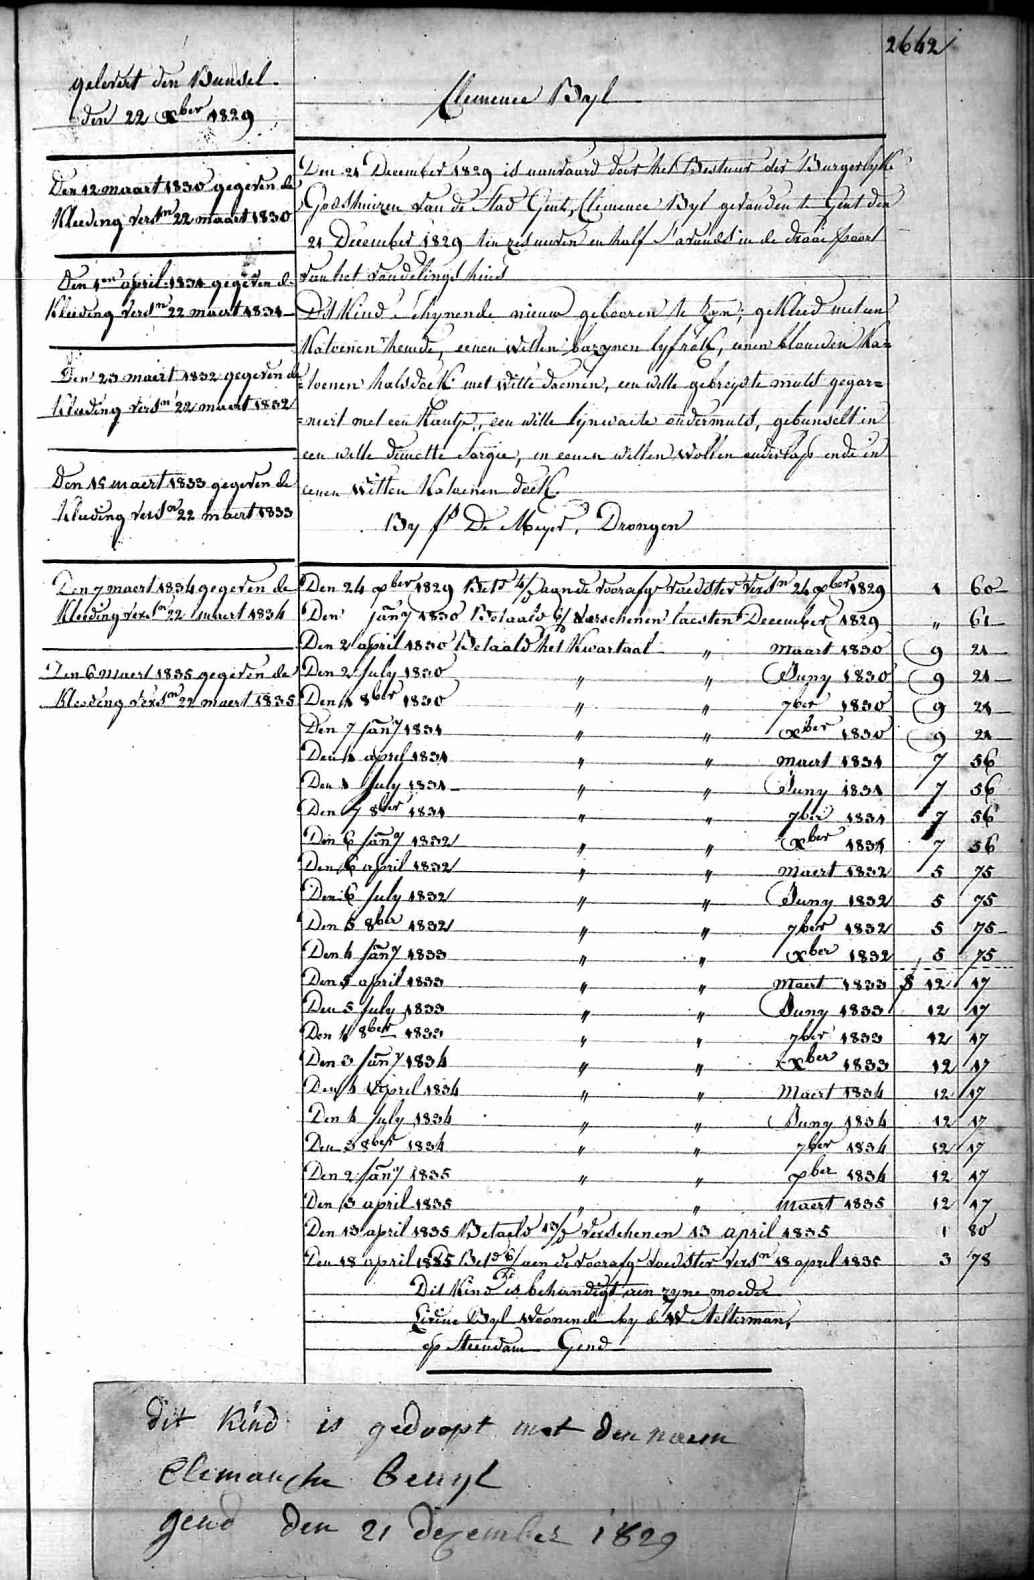 2642
gelevert den Bunsel
den 22 Xber 1829
Clemence Byl
Den 12 maart 1830 gegeven de
Kleeding versn 22 maart 1830
Den 1en april 1831 gegeven de
Kleeding versn 22 maert 1831
Den 23 maert 1832 gegeven de
Kleeding versn 22 maert 1832
Den 15 maert 1833 gegeven de
Kleeding versn 22 maert 1833
Den 7 maert 1834 gegeven de
Kleeding versn 22 maert 1834
Den 6 maert 1835 gegeven de
Kleeding versn 22 maert 1835
Den 21 December 1829 is aanvaard door het Bestuur der Burgerlyke
Godshuizen van de Stad Gent, Clemence Byl gevonden te Gent den
21 December 1829 ten zes uren en half s'avonds in de draai poort
van het vondelings huis
Dit Kind schynende nieuw gebooren te zyn; gekleed met een
Katoenen hemde, eenen witten bazynen lyfrok, eenen blauwen Ka=
=toenen halsdoek met witte bloemen, een witte gebreyde muts gegar=
=neert met een Kantje, een witte lynwaete ondermuts, gebunselt in
een witte Sargie, en eenen witten wollen onderlap ende in
eenen witten Katoenen doek.
By De Meyer, Drongen
Den 24 xber 1829 Betd aan de voorafge voedster versn 24 xber 1829 1 60
Den jany 1830 Betaald verschenen laesten December 1829 " 61
Den 2 april 1830 Betaald het Kwartaal " maart 1830 9 21
Den 2 July 1830 " " Juny 1830 9 21
Den 1 8ber 1830 " " 7ber 1830 9 21
Den 7 Jany 1831 " " Xber 1830 9 21
Den 1 april 1831 " " maert 1831 7 56
Den 1 July 1831 " " Juny 1831 7 56
Den 7 8ber 1831 " " 7ber 1831 7 56
Den 6 Jany 1832 " " Xber 1831 7 56
Den 6 april 1832 " " Maert 1832 5 75
Den 6 July 1832 " " Juny 1832 5 75
Den 5 8ber 1832 " " 7ber 1832 5 75
Den 4 Jany 1833 " " Xber 1832 5 75
Den 5 april 1833 " " Maert 1833 12 17
Den 5 July 1833 " " Juny 1833 12 17
Den 4 8ber 1833 " " 7ber 1833 12 17
Den 3 Jany 1834 " " Xber 1833 12 17
Den 4 April 1834 " " Maert 1834 12 17
Den 4 July 1834 " " Juny 1834 12 17
Den 3 8ber 1834 " " 7ber 1834 12 17
Den 2 Jany 1835 " " xber 1834 12 17
Den 3 april 1835 " " Maert 1835 12 17
Den 13 april 1835 Betaald verschenen 13 april 1835 1 80
Den 18 april 1835 Betd aen de voorafge voedster versn 18 april 1835 3 78
Dit Kind is behandigt aen zyne moeder
Byl woonende by de Wwe Aelterman,
op Steendam Gend
dit Kind is gedoopt met den naem
Clemansche Beuyl
gend den 21 december 1829